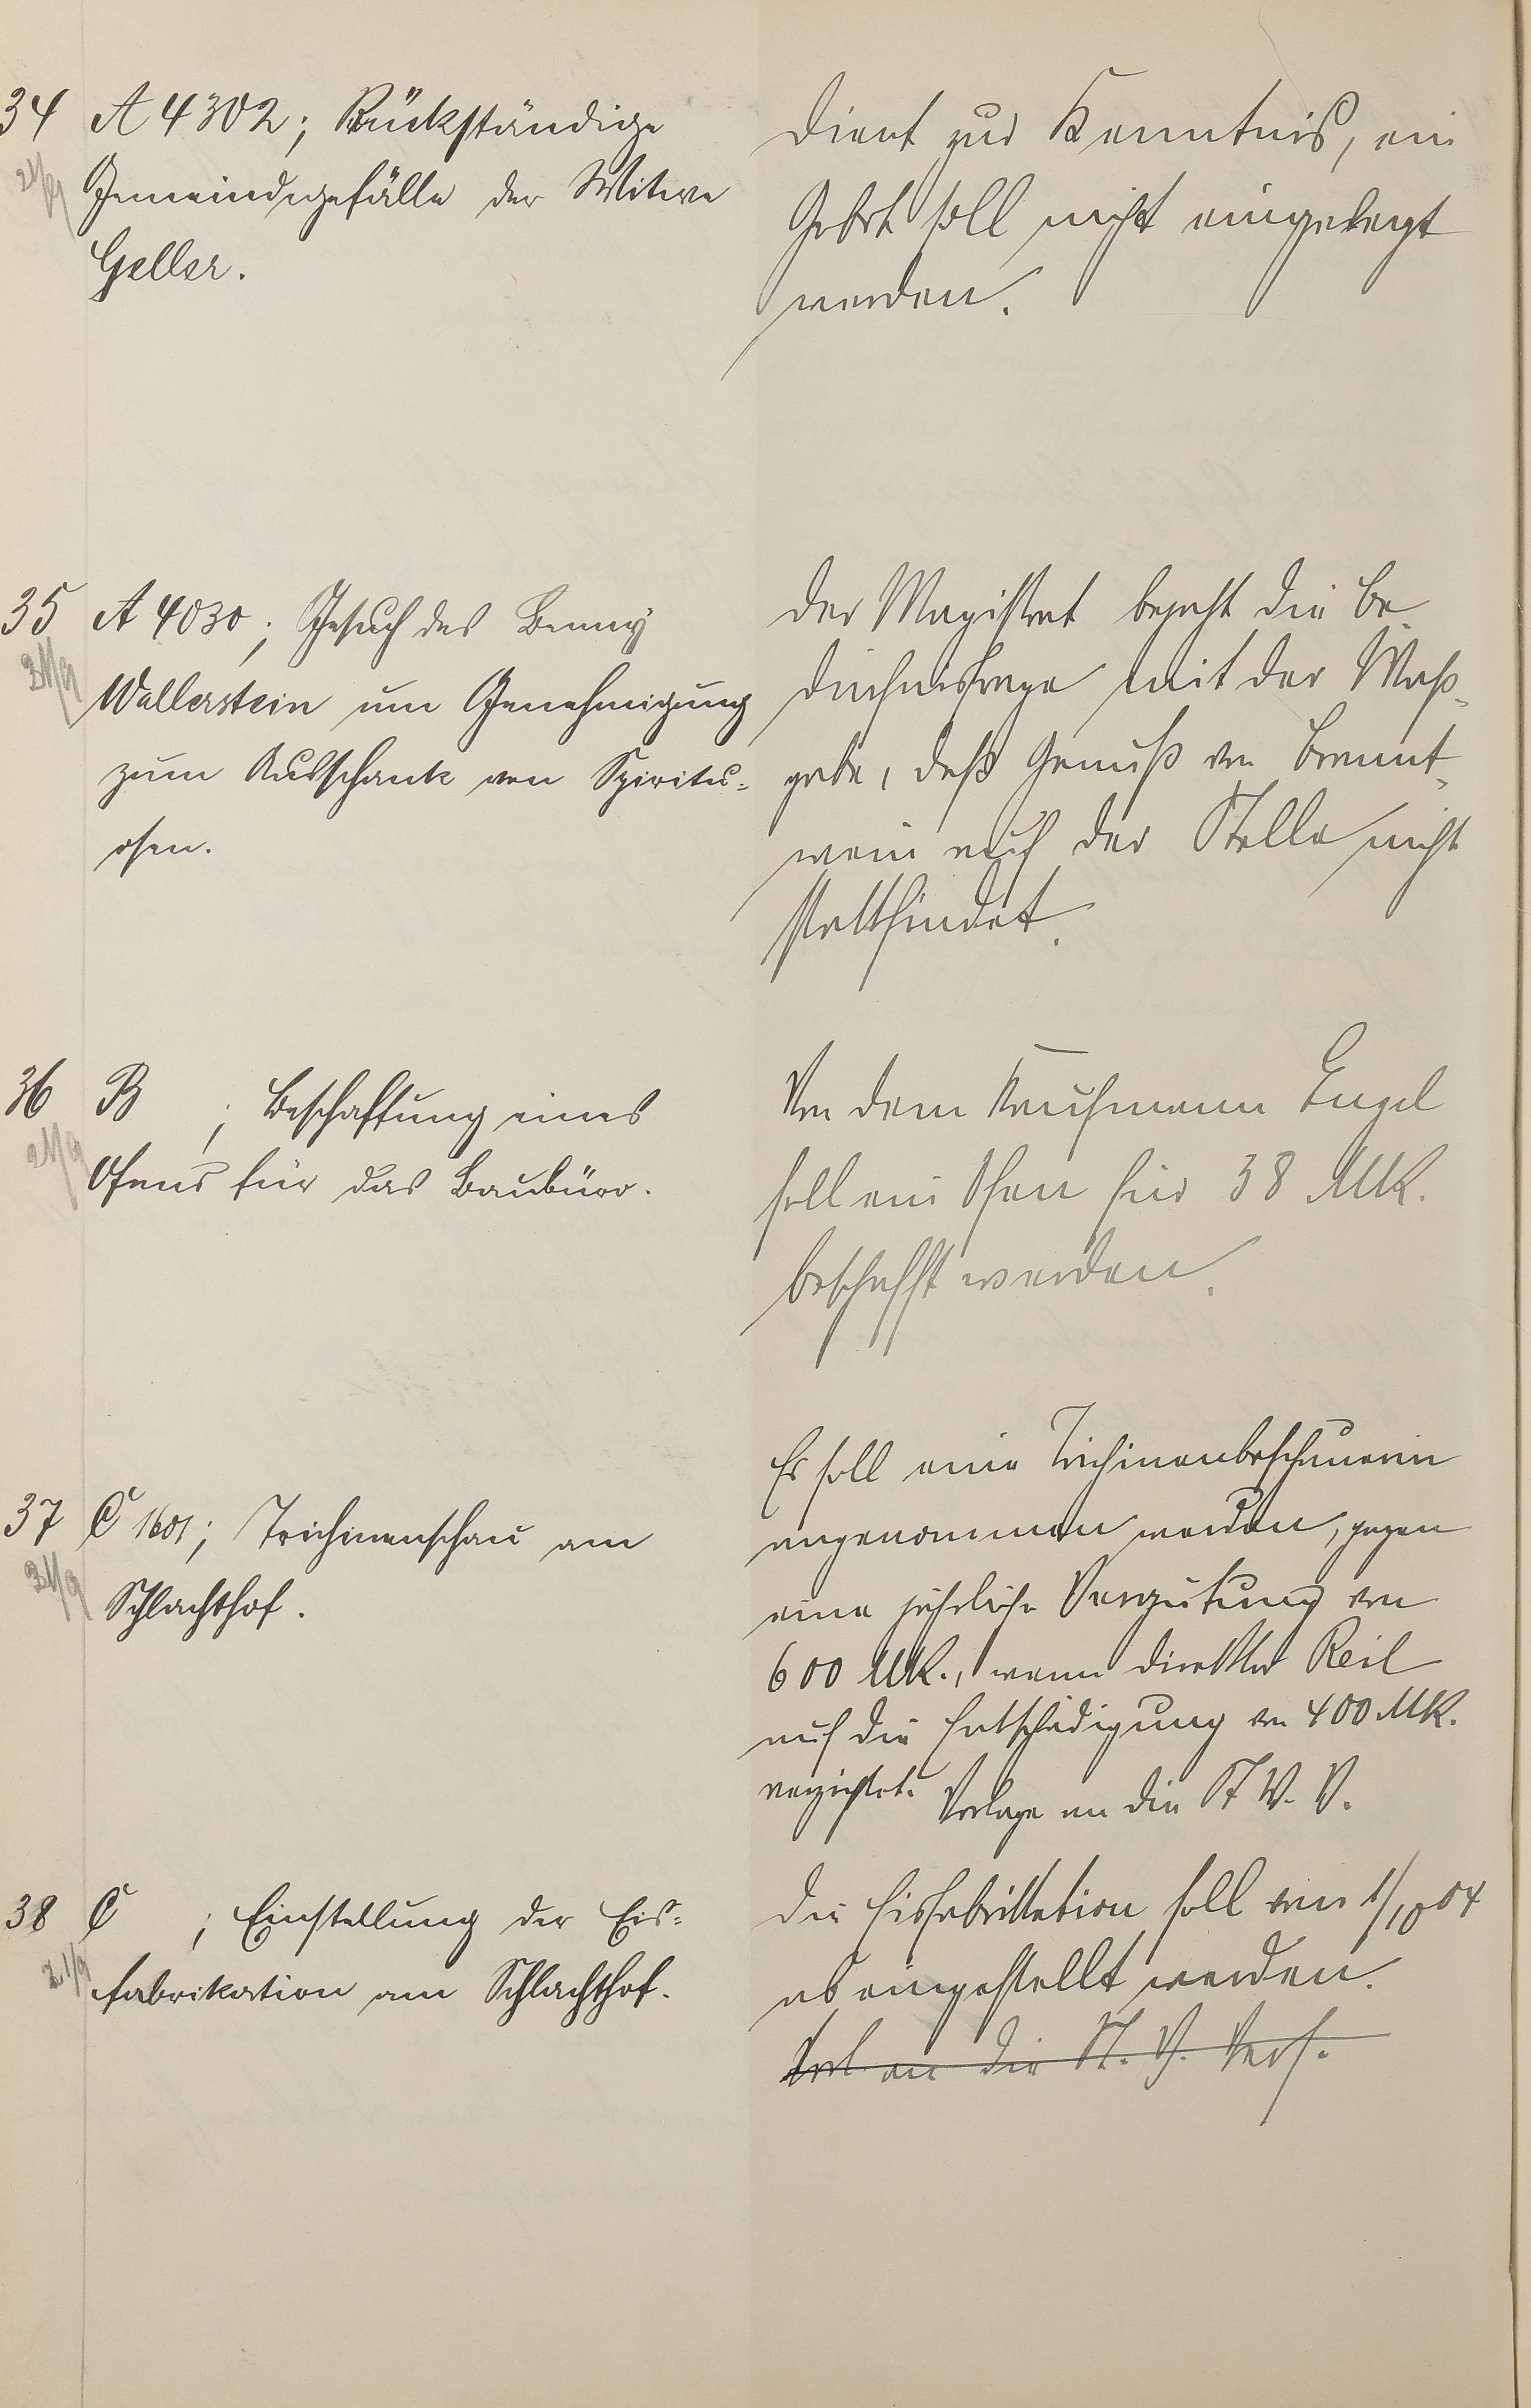 34 A 4302; Rückständige
Gemeindegefälle der Witwe
Geller.
Dient zur Kenntnis, ein
Gebot soll nicht eingelegt
werden.
35 A 4030; Gesuch des Benny
Wallerstein um Genehmigung
zum Ausschank von Spiritu=
osen.
Der Magistrat bejaht die Be
dürfnisfrage mit der Maß=
gabe, daß Genuß von Brannt=
wein auf der Stelle nicht
stattfindet.
36 B ; Beschaffung eines
Ofens für das Baubüro.
Von dem Kaufmann Engel
soll ein Ofen für 38 Mk.
beschafft werden.
37 C 1601; Trichinenschau am
Schlachthof.
Es soll eine Trichinenbeschauerin
angenommen werden, gegen
eine jährliche Vergütung von
600 Mk., wenn Direktor Reil
auf die Entschädigung von 400 Mk.
verzichtet. Vorlage an die St. V. V.
38 C ; Einstellung der Eis=
fabrikation am Schlachthof.
Die Eisfabrikation soll vom 1/10 04
ab eingestellt werden.
Vorl. an die St. V. Vers.